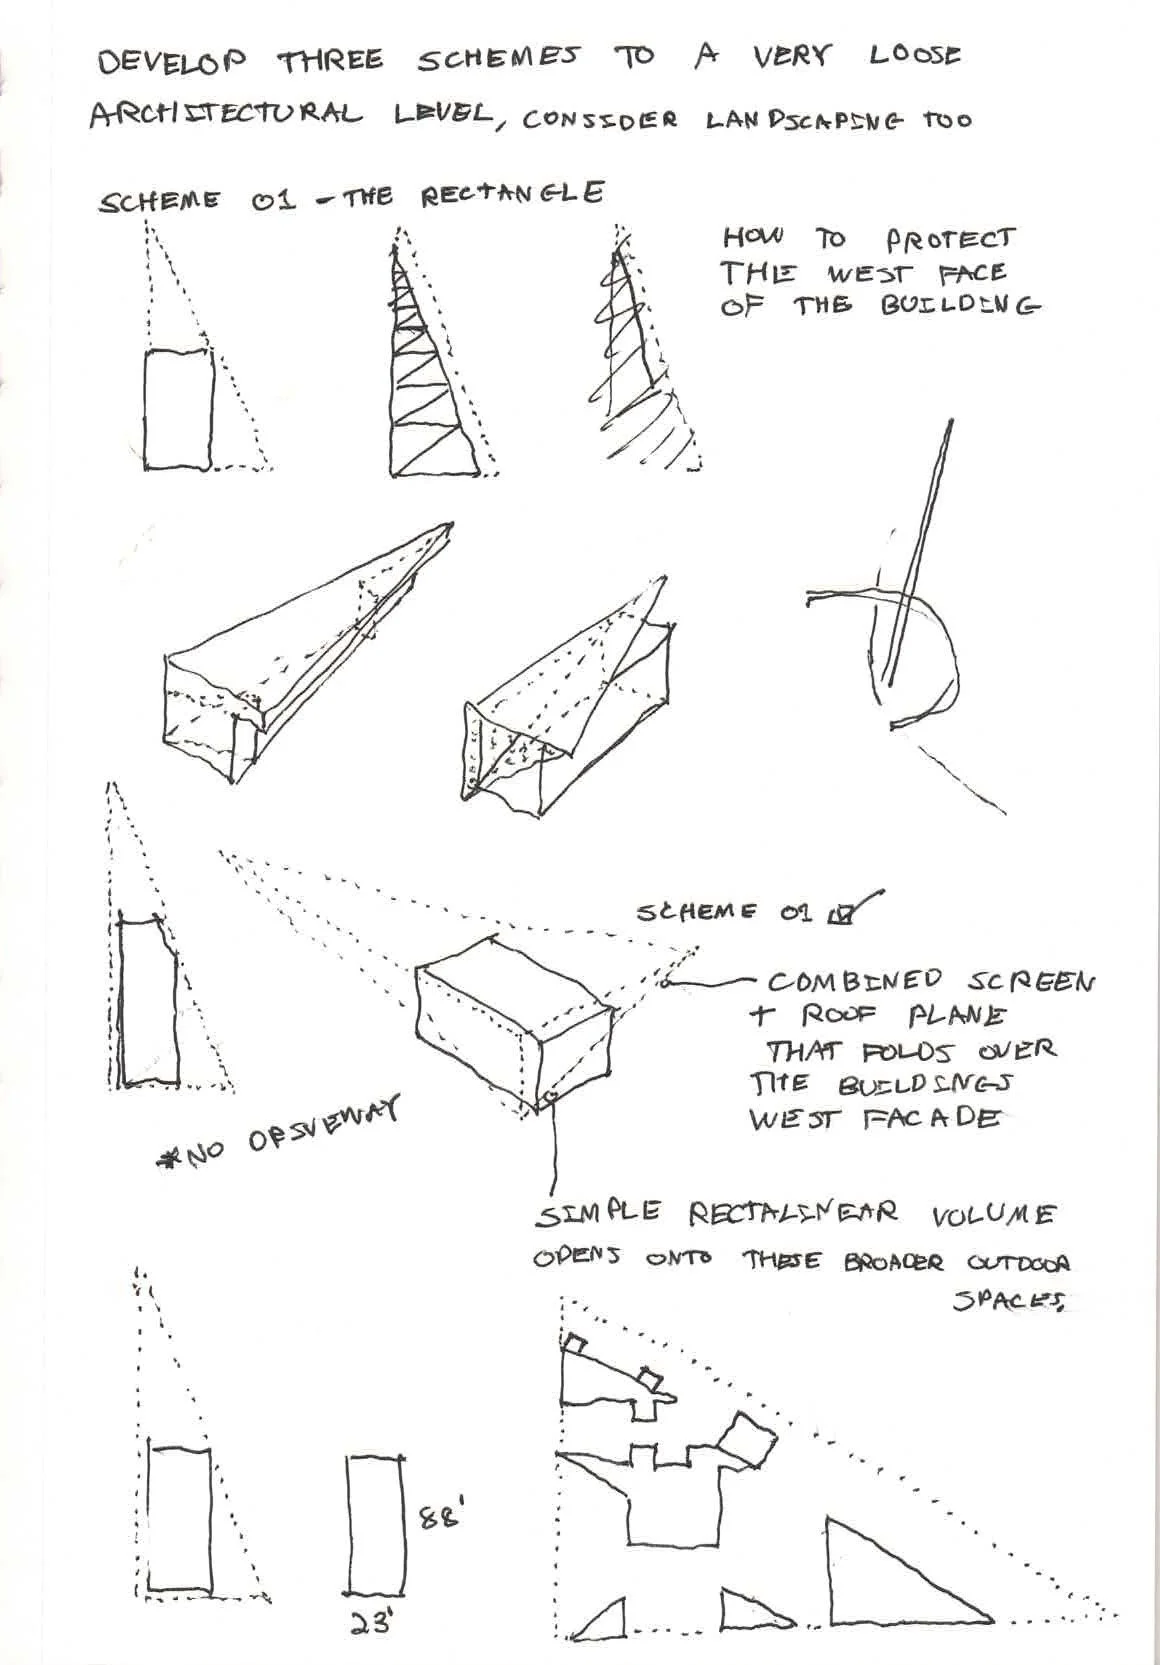 DEVELOP THREE SCHEMES TO A VERY LOOSE
ARCHITECTURAL LEVEL, CONSIDER LANDSCAPING TOO
SCHEME 01 - THE RECTANGLE
HOW TO PROTECT
THE WEST FACE
OF THE BUILDING
SCHEME 01
COMBINED SCREEN
+ ROOF PLANE
THAT FOLDS OVER
THE BUILDINGS
WEST FACADE
*NO DRIVEWAY
SIMPLE RECTALINEAR VOLUME
OPENS ONTO THESE BROADER OUTDOOR
SPACES.
88'
23'